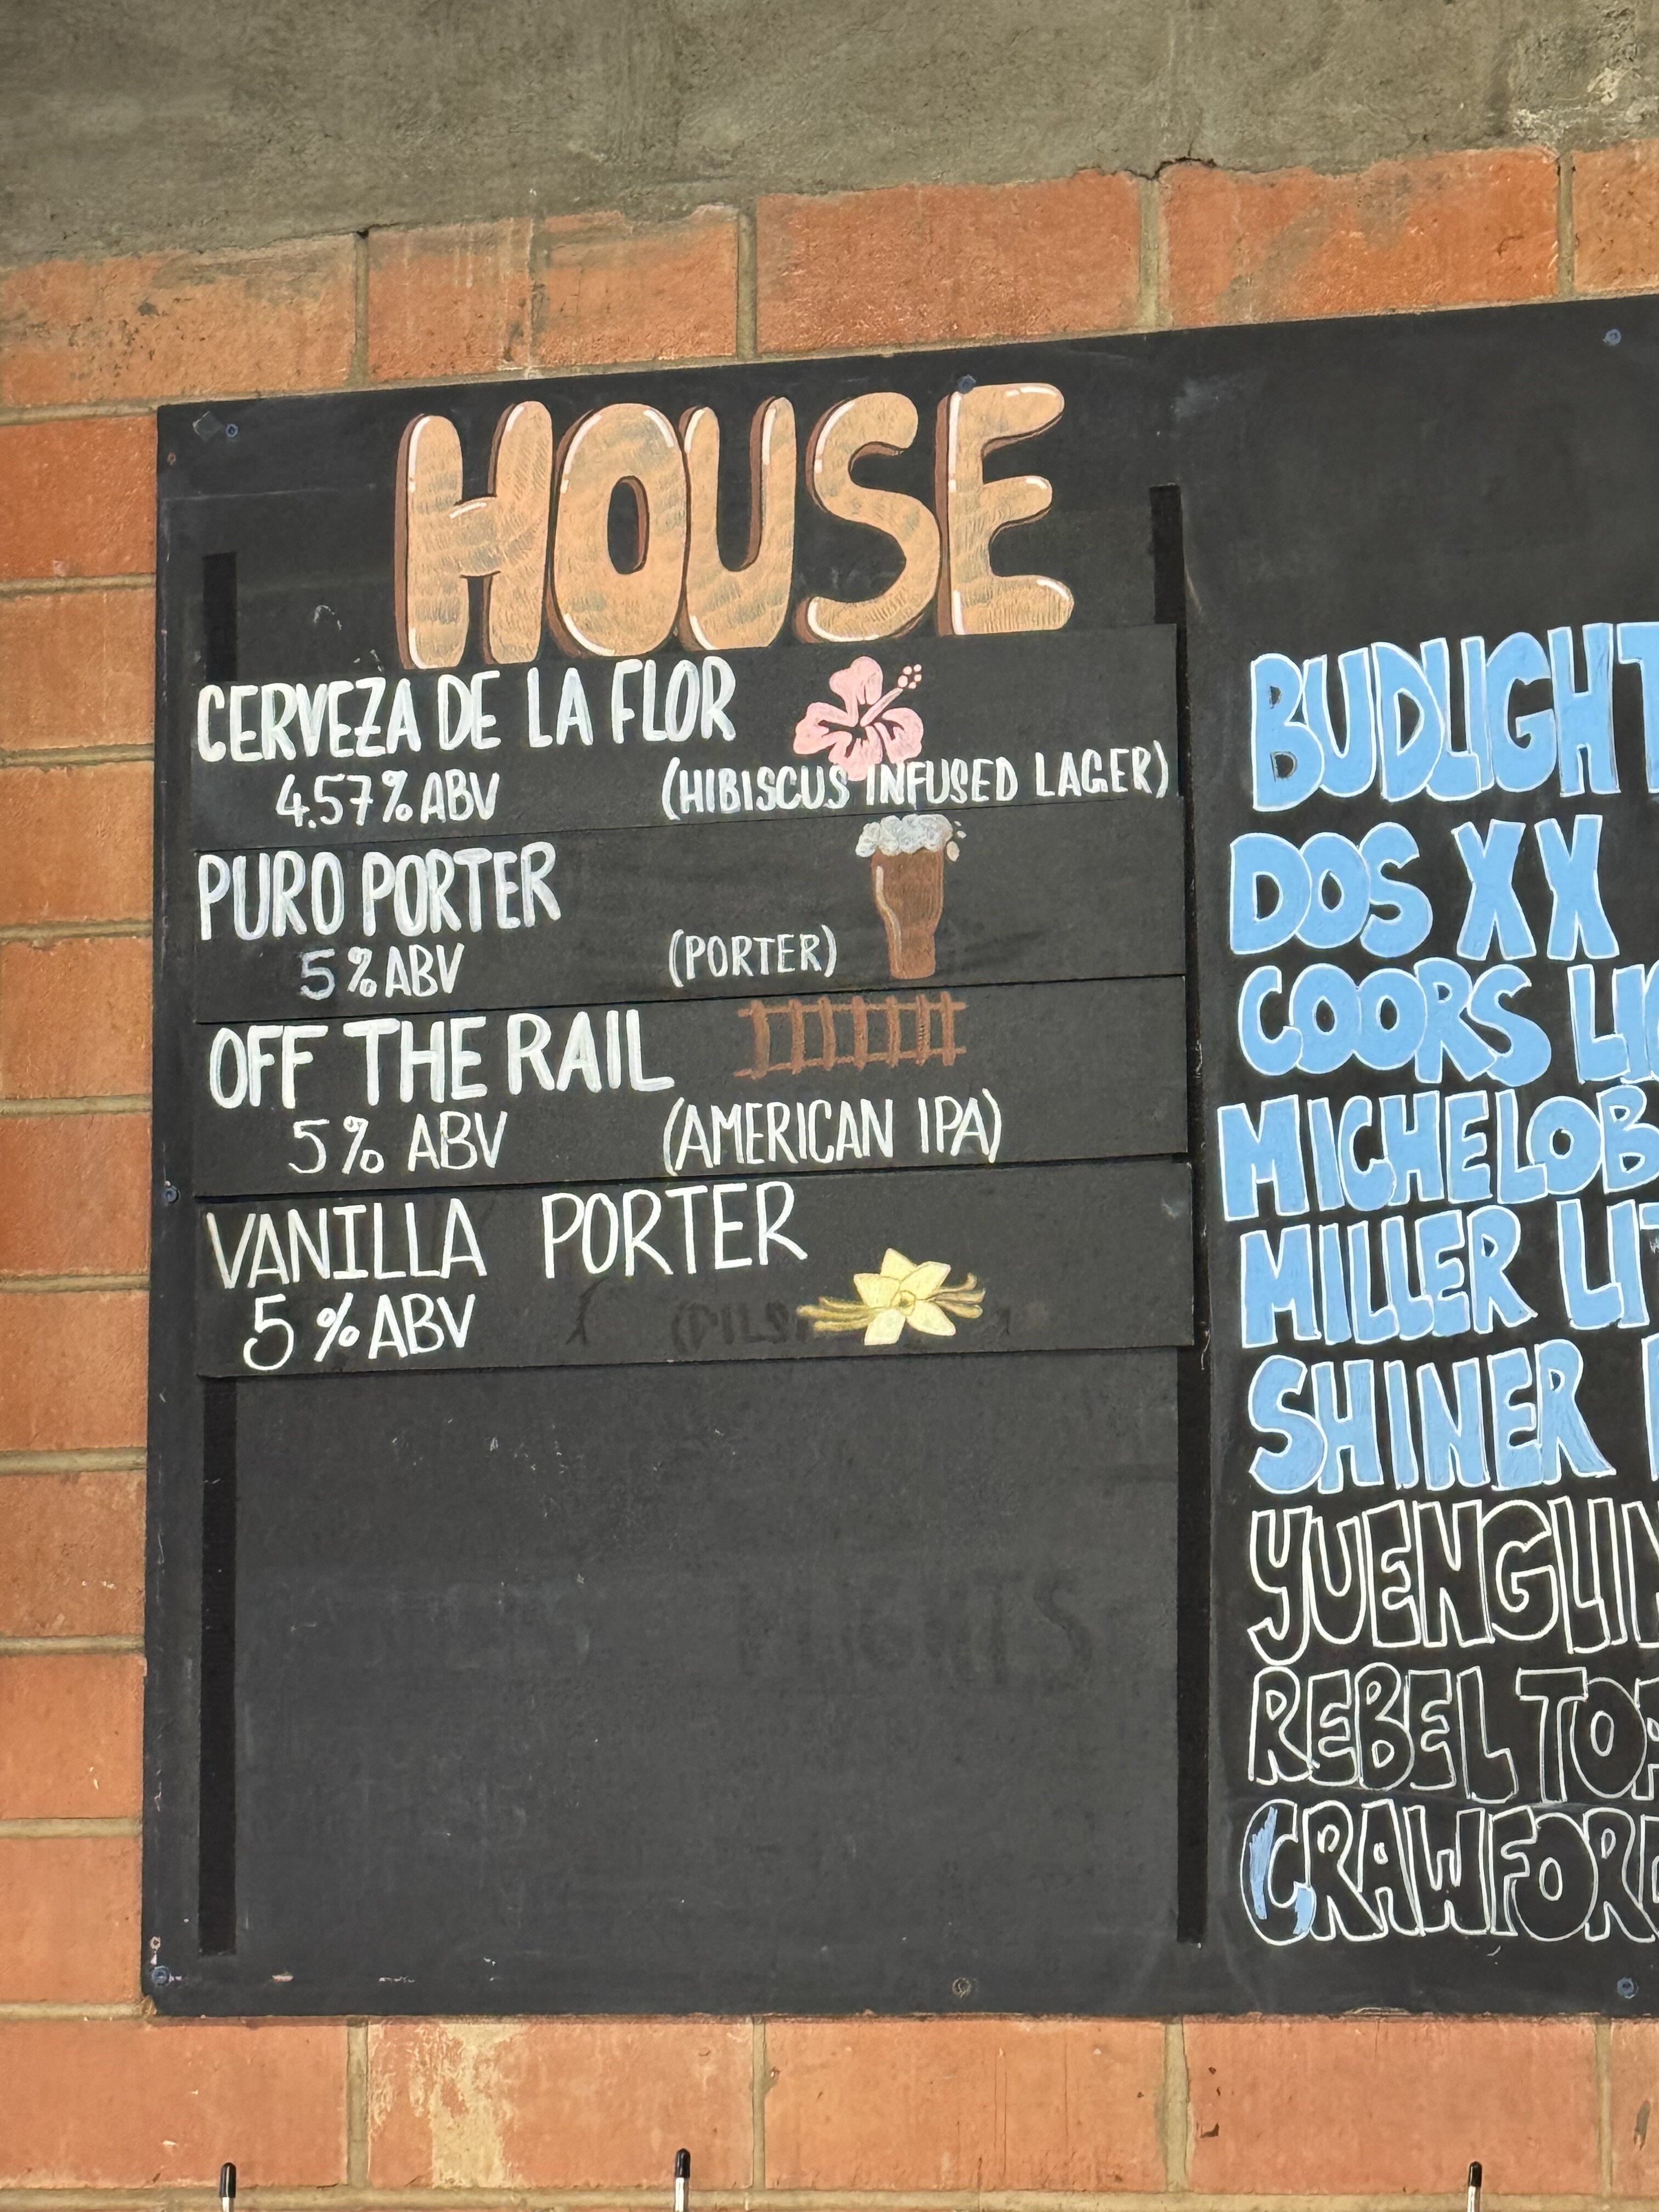 HOUSE
CERVEZA DE LA FLOR
4.57% ABV (HIBISCUS INFUSED LAGER)
PURO PORTER
5% ABV (PORTER)
OFF THE RAIL
5% ABV (AMERICAN IPA)
VANILLA PORTER
5% ABV
BUDLIGHT
DOS XX
COORS
MICHELOB
MILLER
SHINER
REBEL